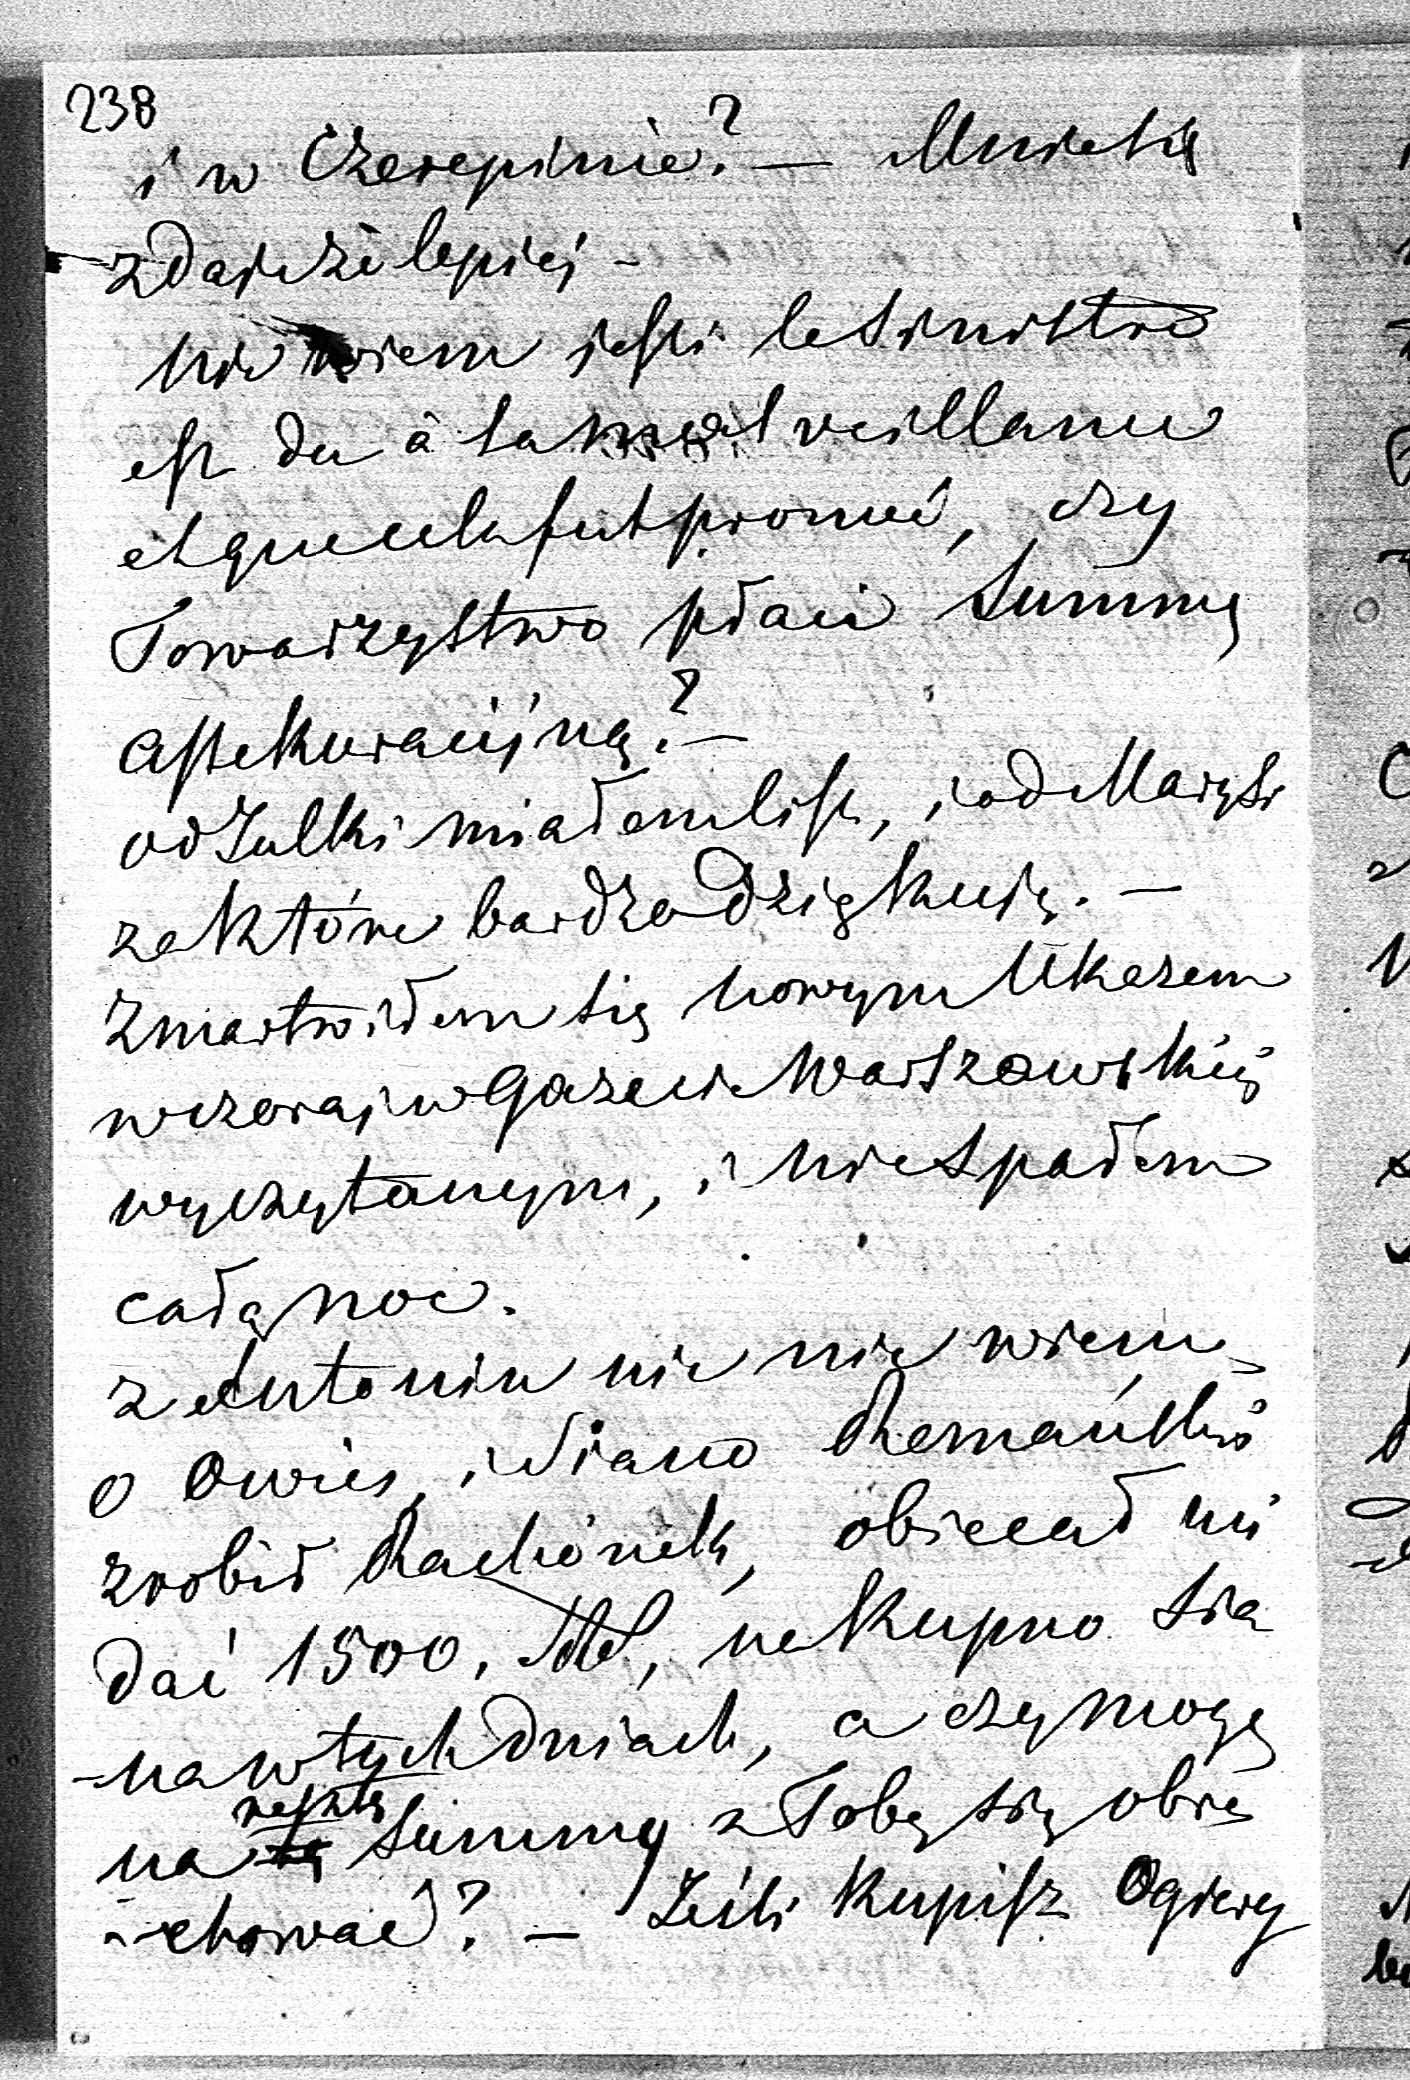 238
i w Czerepinie? — Mnie się
zdaje że lepiej –
nie wiem jeśli le sinistre
est du à la malveillance
et que cela fut prouvé, czy
Towarzystwo płaci Summę
assekuracijną? —
od Julki miałem list, i od Marysi
za które bardzo dziękuję. —
zmartwiłem się nowym Ukazem
wczoraj w Gazecie Warszawskiej
wyczytanym, i nie spałem
całą noc.
z Antonin nic nie wiem
o Owies, i Siano Remański
zrobił Rachónek, obiecał mi
dać 1500, na kupno Sia
-na w tych dniach, a czy mogę
resztę
na tę Summy z Tobą się obra
-chować? — Jeśli kupisz Ogiery